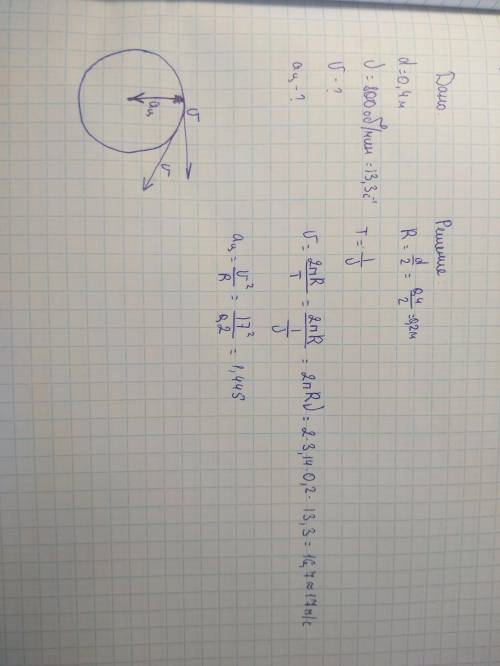 Дано
d=0,4м
ν=800об/мин=13,3с⁻¹
υ-?
aц-?
Решение
R=d/2=0,4/2=0,2м
T=1/ν
υ=2πR/T=2πR/(1/ν)=2πRν=2·3,14·0,2·13,3=16,7≈17м/с
aц=υ²/R=17²/0,2=1,445
aц
υ
υ